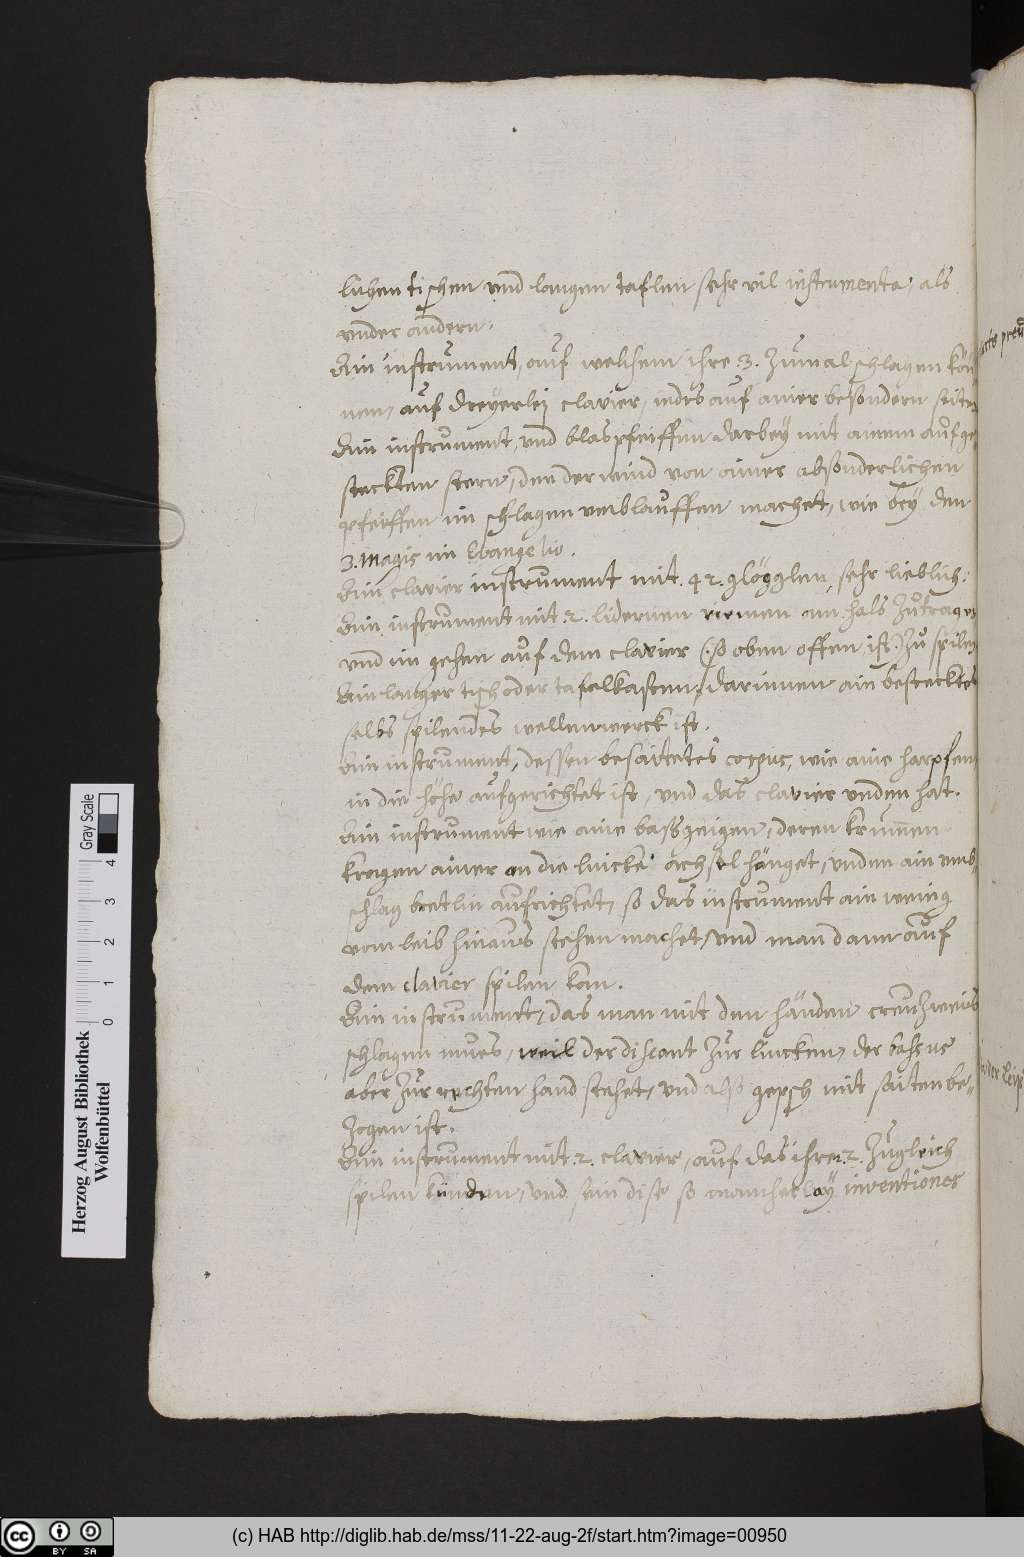 lichen tischen vnd langen taflen sehr vil instrumenta, als
vnder andern.
Ain instrument, auf welchem ihre .3. zumal schlagen kön-
nen, auf dreyerlej clavier, iedes auf ainer besondern seiten
Ain instrument, vnd blaspfeiffen darbey mit ainem aufge-
steckten stern, den der wind von ainer absonderlichen
pfeiffen im schlagen umblauffen machet, wie bey den
3. Magis im Evangelio.
Ain clavier instrument mit .42. glögglen, sehr lieblich.
Ain instrument mit .2. lidernen riemen am hals zutragen
vnd im gehen auf dem clavier (.so oben offen ist.) zu spilen
Ain langer tisch oder tafelkasten, darinnen ain bestecktes
selbs spilendes wellenwerck ist.
Ain instrument, dessen besaitetes corpus, wie aine harpfen
in die höhe aufgerichtet ist, vnd das clavier unden hat.
Ain instrument wie aine bassgeigen, deren krummen
kragen ainer an die lincke achsel hänget, unden ain umb-
schlag bretlin aufrichtet, so das instrument ain wenig
vom leib hinaus stehen machet, vnd man dann auf
dem clavier spilen kan.
Ain instrument, das man mit den händen creuzweis
schlagen mues, weil der discant zur lincken, der bassus
aber zur rechten hand stehet, vnd also gepsch mit saiten be-
zogen ist.
Ain instrument mit .2. clavier, auf das ihrer .2. zugleich
spilen künden, vnd sein dise so mancherlay inventiones
Herzog August Bibliothek
Wolfenbüttel
Gray Scale
0 1 2 3 4
cc BY SA
(c) HAB http://diglib.hab.de/mss/11-22-aug-2f/start.htm?image=00950